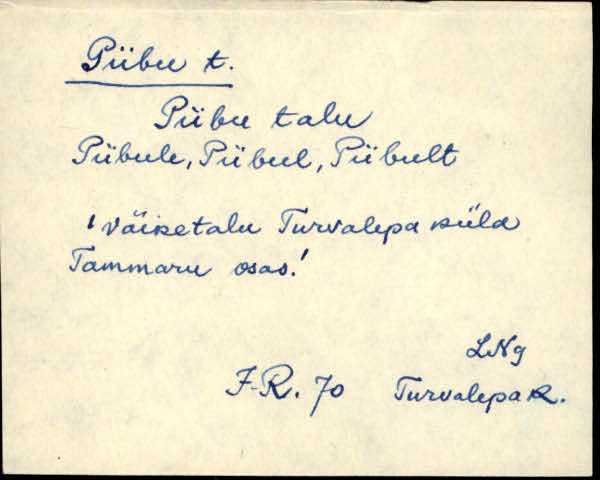 Piibu t.
Piibu talu
Piibule, Piibul, Piibult
'väiketalu Turvalepa küla
Tammaru osas.'
LNg
F-R. 70 Turvalepa k.